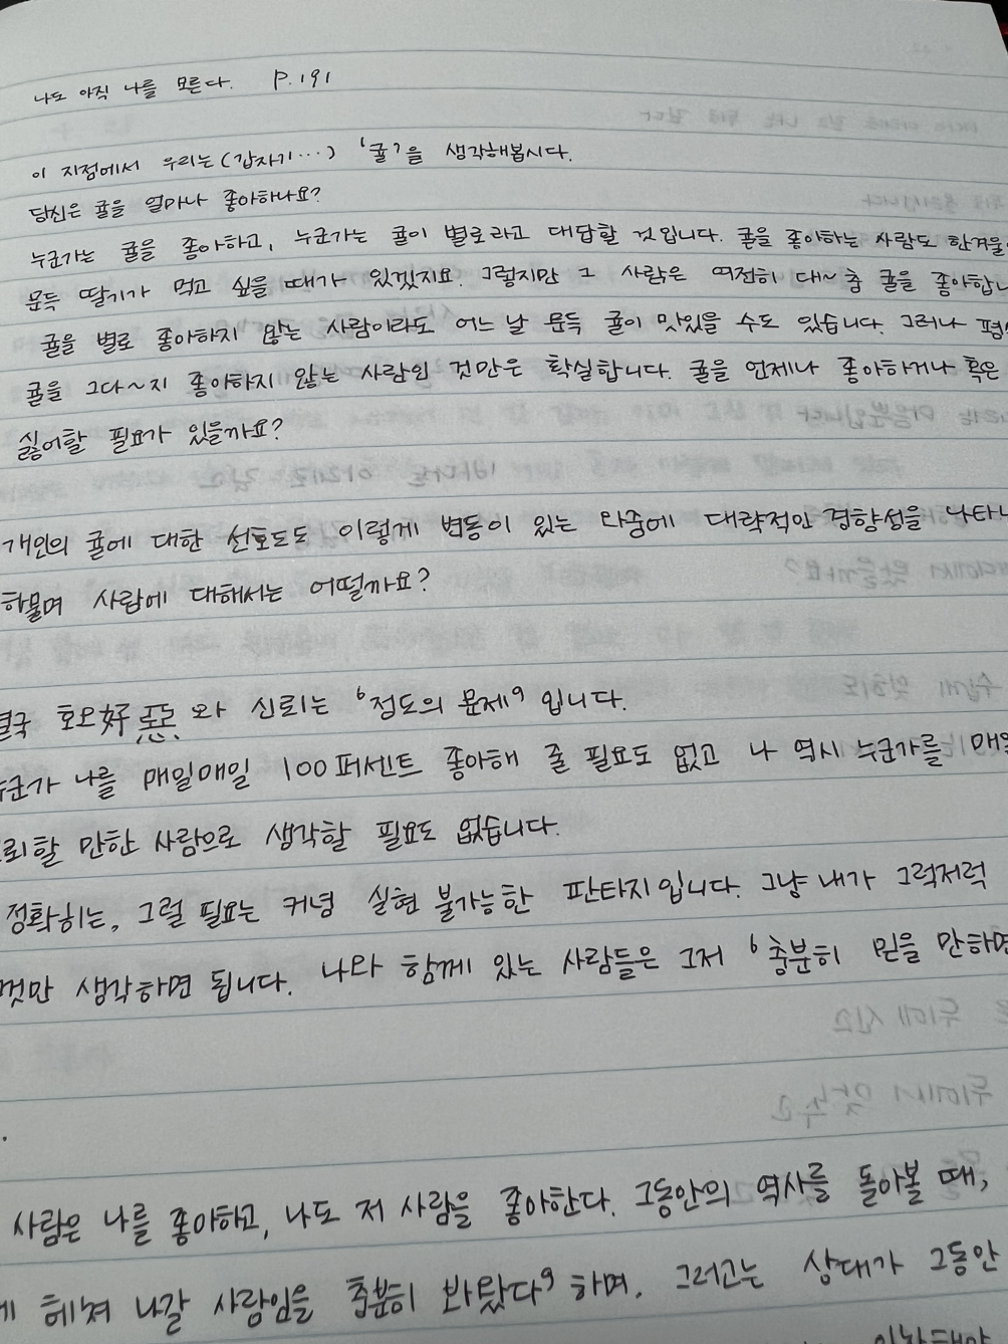 나도 아직 나를 모른다. P.191
이 지점에서 우리는(갑자기...) '귤'을 생각해봅시다.
당신은 귤을 얼마나 좋아하나요?
누군가는 귤을 좋아하고, 누군가는 귤이 별로라고 대답할 것입니다. 귤을 좋아하는 사람도 한겨울
문득 딸기가 먹고 싶을 때가 있겠지요. 그렇지만 그 사람은 여전히 대~충 귤을 좋아합니
귤을 별로 좋아하지 않는 사람이라도 어느 날 문득 귤이 맛있을 수도 있습니다. 그러나 평
귤을 그다~지 좋아하지 않는 사람인 것만은 확실합니다. 귤을 언제나 좋아하거나 혹은
싫어할 필요가 있을까요?
개인의 귤에 대한 선호도도 이렇게 변동이 있는 와중에 대략적인 경향성을 나타내
하물며 사람에 대해서는 어떨까요?
결국 호오好惡와 신뢰는 '정도의 문제'입니다.
누군가 나를 매일매일 100퍼센트 좋아해 줄 필요도 없고 나 역시 누군가를 매일
뢰할 만한 사람으로 생각할 필요도 없습니다.
정확히는, 그럴 필요는 커녕 실현 불가능한 판타지입니다. 그냥 내가 그럭저럭
것만 생각하면 됩니다. 나와 함께 있는 사람들은 그저 '충분히 믿을 만하면
사람은 나를 좋아하고, 나도 저 사람을 좋아한다. 그동안의 역사를 돌아볼 때,
게 헤쳐 나갈 사람임을 충분히 봐왔다'하며. 그러고는 상대가 그동안